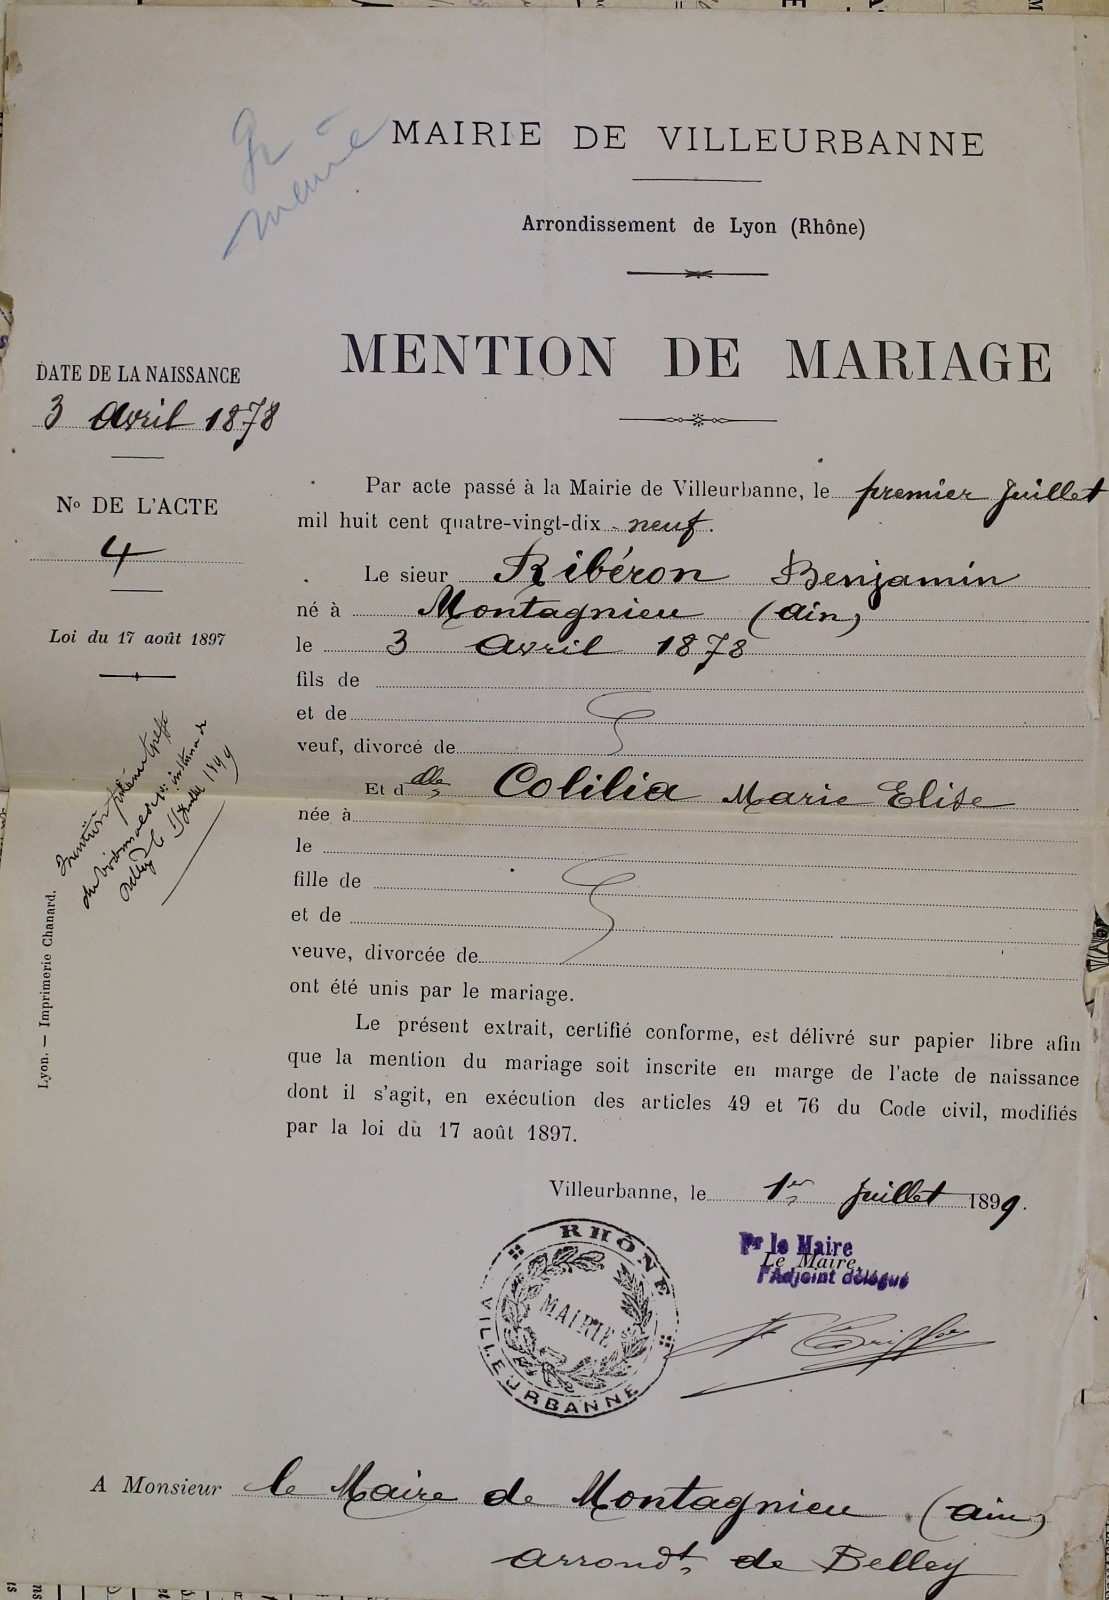 MAIRIE DE VILLEURBANNE
Arrondissement de Lyon (Rhône)
MENTION DE MARIAGE
DATE DE LA NAISSANCE
3 Avril 1878
No DE L'ACTE
4
Loi du 17 août 1897
Par acte passé à la Mairie de Villeurbanne, le premier Juillet
mil huit cent quatre-vingt-dix-neuf.
Le sieur Ribéron Benjamin
né à Montagnieu (Ain)
le 3 Avril 1878
fils de
et de
veuf, divorcé de
Et dlle Colilia Marie Elise
née à
le
fille de
et de
veuve, divorcée de
ont été unis par le mariage.
Le présent extrait, certifié conforme, est délivré sur papier libre afin
que la mention du mariage soit inscrite en marge de l'acte de naissance
dont il s'agit, en exécution des articles 49 et 76 du Code civil, modifiés
par la loi du 17 août 1897.
Villeurbanne, le 1er Juillet 1899.
Pr le Maire
Le Maire,
l'Adjoint délégué
RHÔNE
MAIRIE
VILLEURBANNE
A Monsieur le Maire de Montagnieu (Ain)
arrondt de Belley
Lyon. — Imprimerie Chanard.